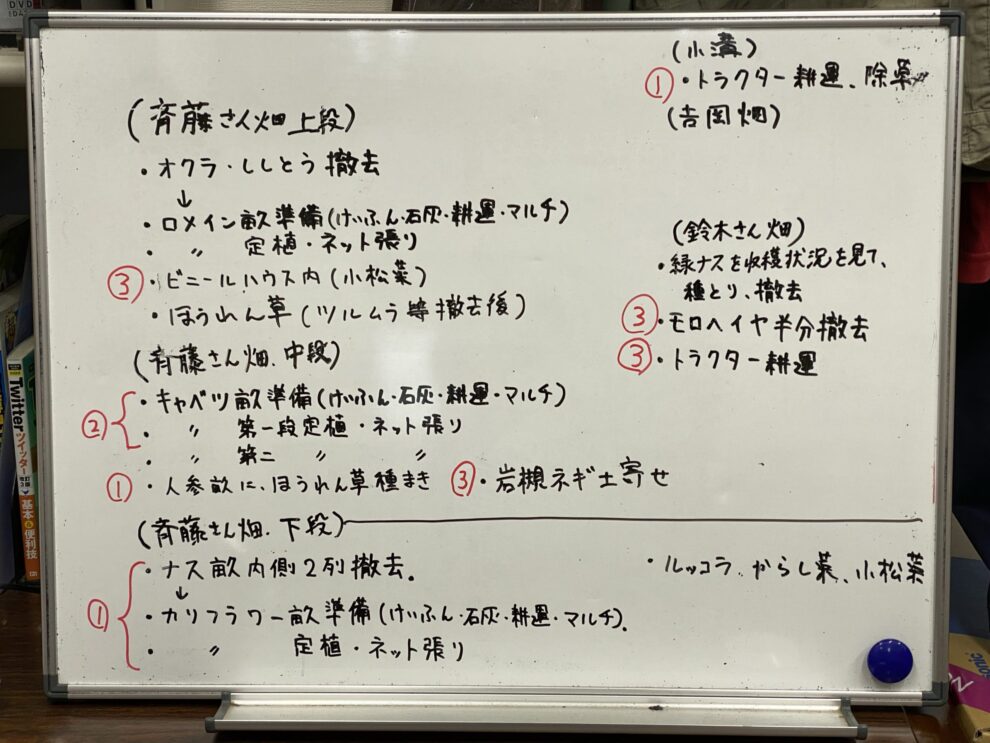 (斉藤さん畑上段)
・オクラ・ししとう撤去
↓
・ロメイン畝準備(けいふん・石灰・耕運・マルチ)
・ 〃 定植・ネット張り
③・ビニールハウス内(小松菜)
・ほうれん草(ツルムラ等撤去後)
(斉藤さん畑、中段)
②・キャベツ畝準備(けいふん・石灰・耕運・マルチ)
・ 〃 第一段定植・ネット張り
・ 〃 第二 〃 〃
①・人参畝に、ほうれん草種まき
③・岩槻ネギ土寄せ
(斉藤さん畑、下段)
①・ナス畝内側2列撤去。
↓
・カリフラワー畝準備(けいふん・石灰・耕運・マルチ)。
・ 〃 定植・ネット張り
(小溝)
①・トラクター耕運、除草
(吉岡畑)
(鈴木さん畑)
・緑ナスを収穫状況を見て、
種とり、撤去
③・モロヘイヤ半分撤去
③・トラクター耕運
・ルッコラ、からし菜、小松菜
Twitter
ツイッター
基本&便利技